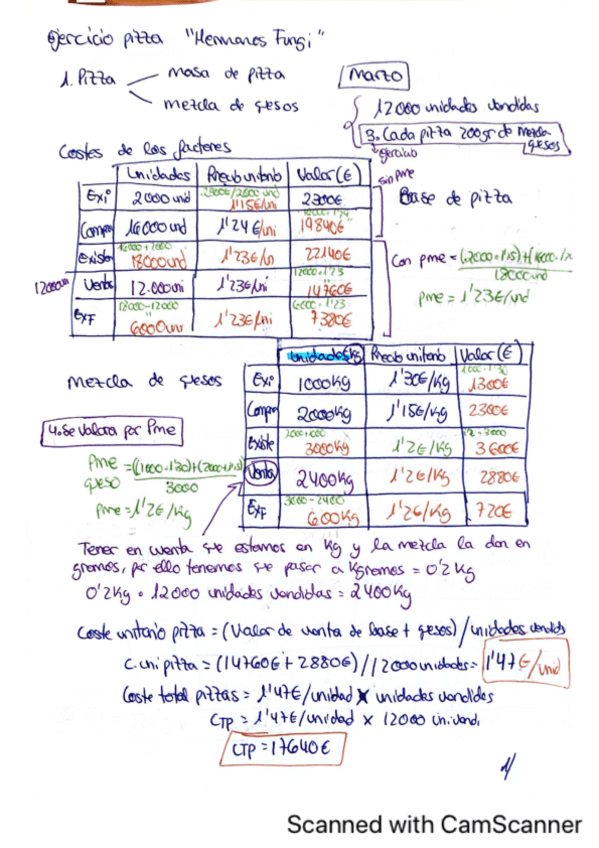 Ejercicio pizza "Hermanos Fungi"
1. Pizza
masa de pizza
mezcla de quesos
Marzo
12000 unidades vendidas
3. Cada pizza 200gr de mezcla quesos
ejercicio
Costes de los factores
sin pme
Unidades Precio unitario Valor (€)
2300€/2000 und
Exi 2000 und 1'15€/uni 2300€
Compra 16000 und 1'24 €/uni 19840€
16000 + 2000
Existen 18000 und 1'23€/uni 22140€
12000 · 1'23
12000un Venta 12.000 uni 1'23€/uni 14760€
18000-12000 6000 · 1'23
ExF 6000 uni 1'23€/uni 7380€
Base de pizza
con pme = (2000 · 1'15)+(16000 · 1'2
18000 und
pme = 1'23€/und
Mezcla de quesos
4. Se valora por Pme
Unidades kg Precio unitario Valor (€)
1000 · 1'30
Exi 1000 Kg 1'30€/kg 1300€
Compra 2000Kg 1'15€/kg 2300€
2000+1000 1'2 · 3000
Existe 3000Kg 1'2€/kg 3600€
Venta 2400Kg 1'2€/kg 2880€
3000 - 2400
ExF 600Kg 1'2€/kg 720€
Pme queso = ((1000 · 1'30)+(2000 · 1'15)
3000
Pme = 1'2€/kg
Tener en cuenta que estamos en Kg y la mezcla la dan en
gramos, por ello tenemos que pasar a Kgramos = 0'2 Kg
0'2Kg · 12000 unidades vendidas = 2400Kg
Coste unitario pizza = (Valor de venta de base + quesos) / unidades vendids
C. uni pizza = (14760€ + 2880€) / 12000 unidades = 1'47€/und
Coste total pizzas = 1'47€/unidad x unidades vendidas
CTP = 1'47€/unidad x 12000 un.vend.
CTP = 17640€
1/
Scanned with CamScanner